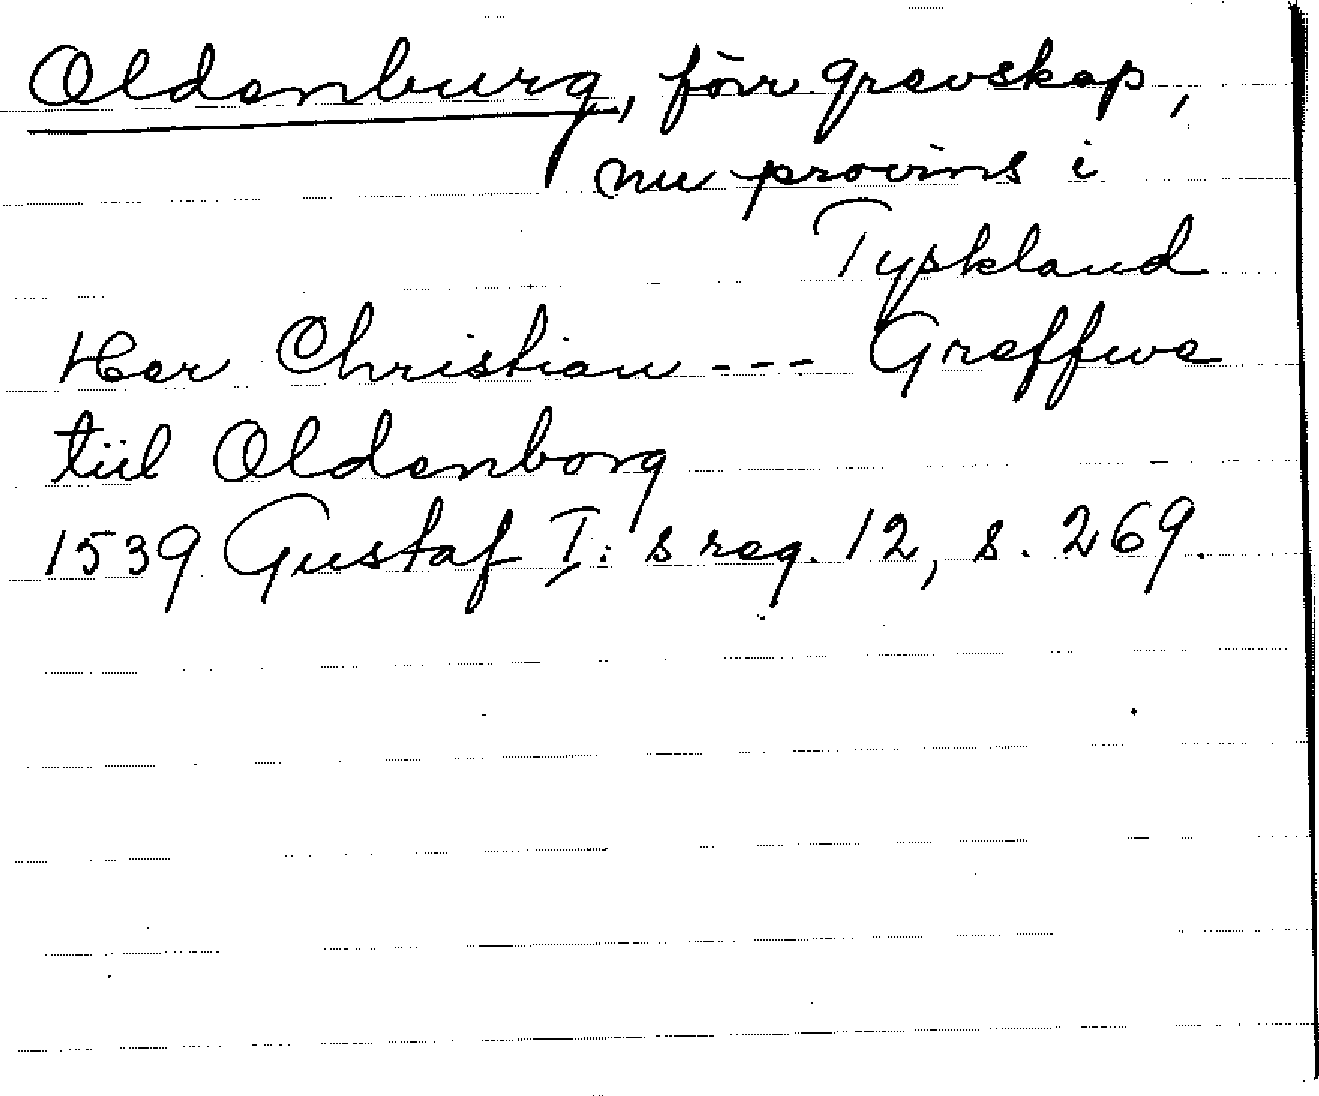 Oldenburg, förr grevskap,
nu provins i
Tyskland
Her Christian --- Greffwe
tiil Oldenborg
1539 Gustaf I:s reg. 12, s. 269.